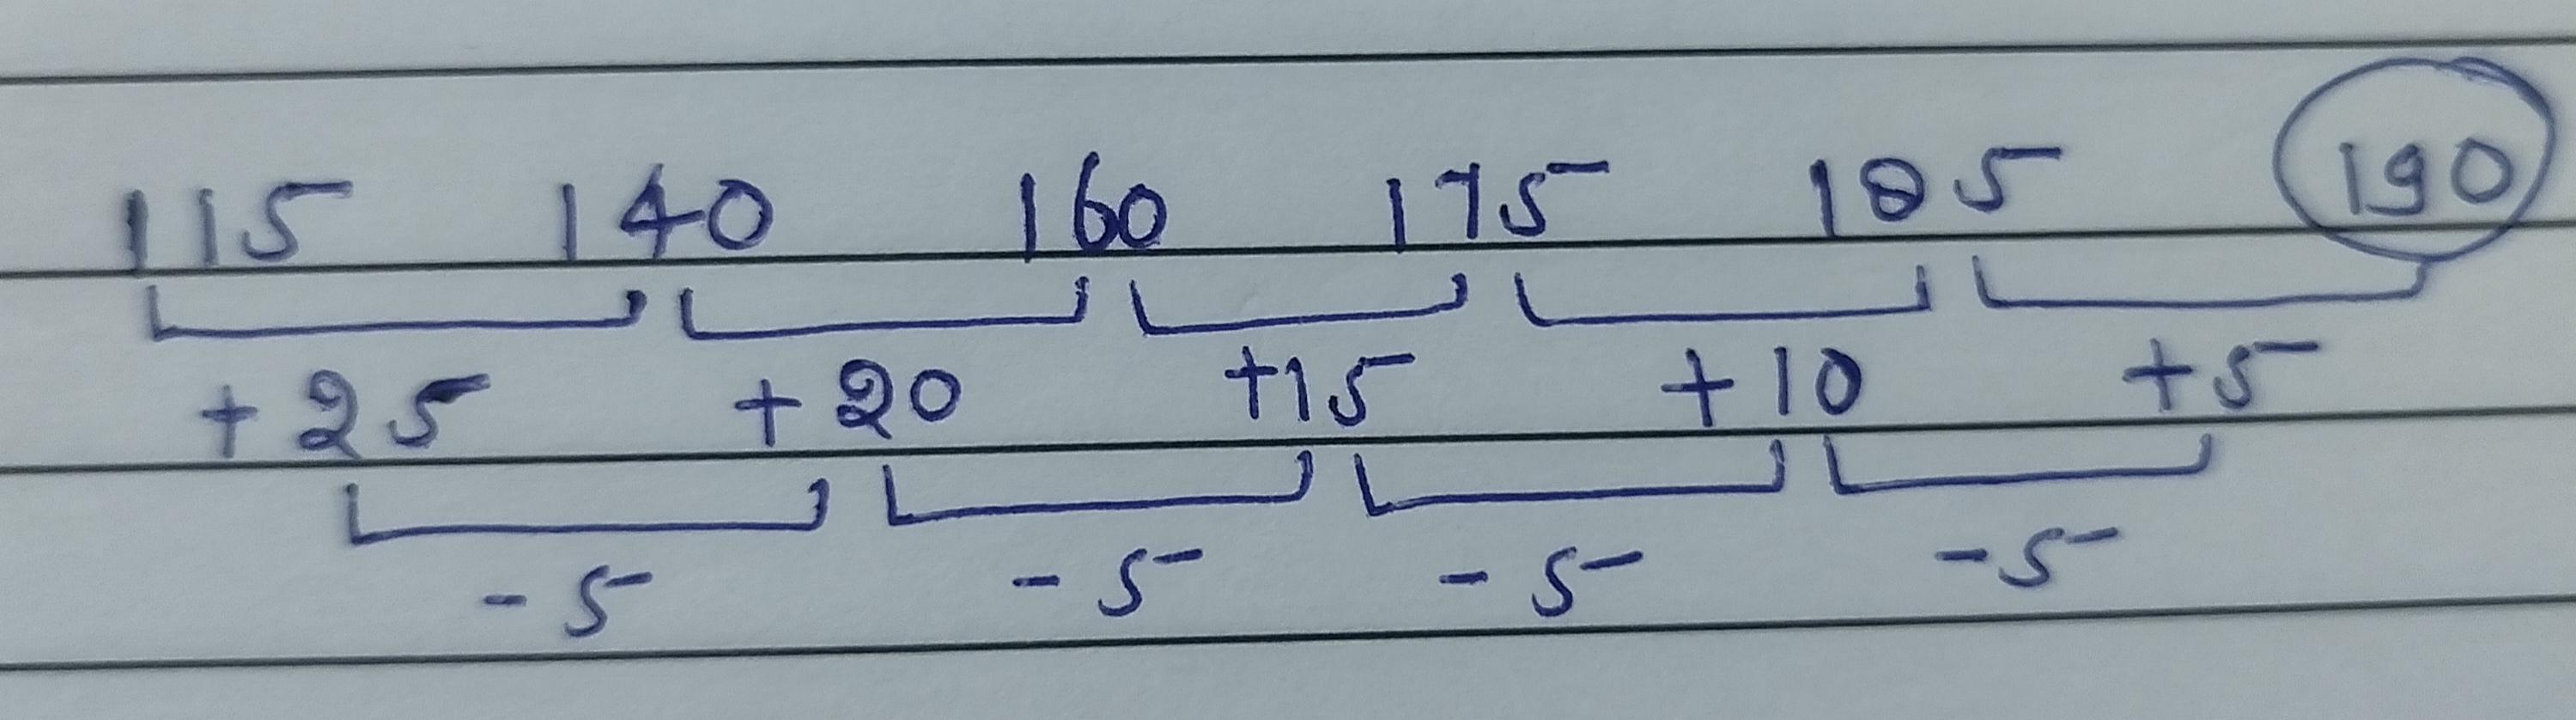 115 140 160 175 185 190
+25 +20 +15 +10 +5
-5 -5 -5 -5